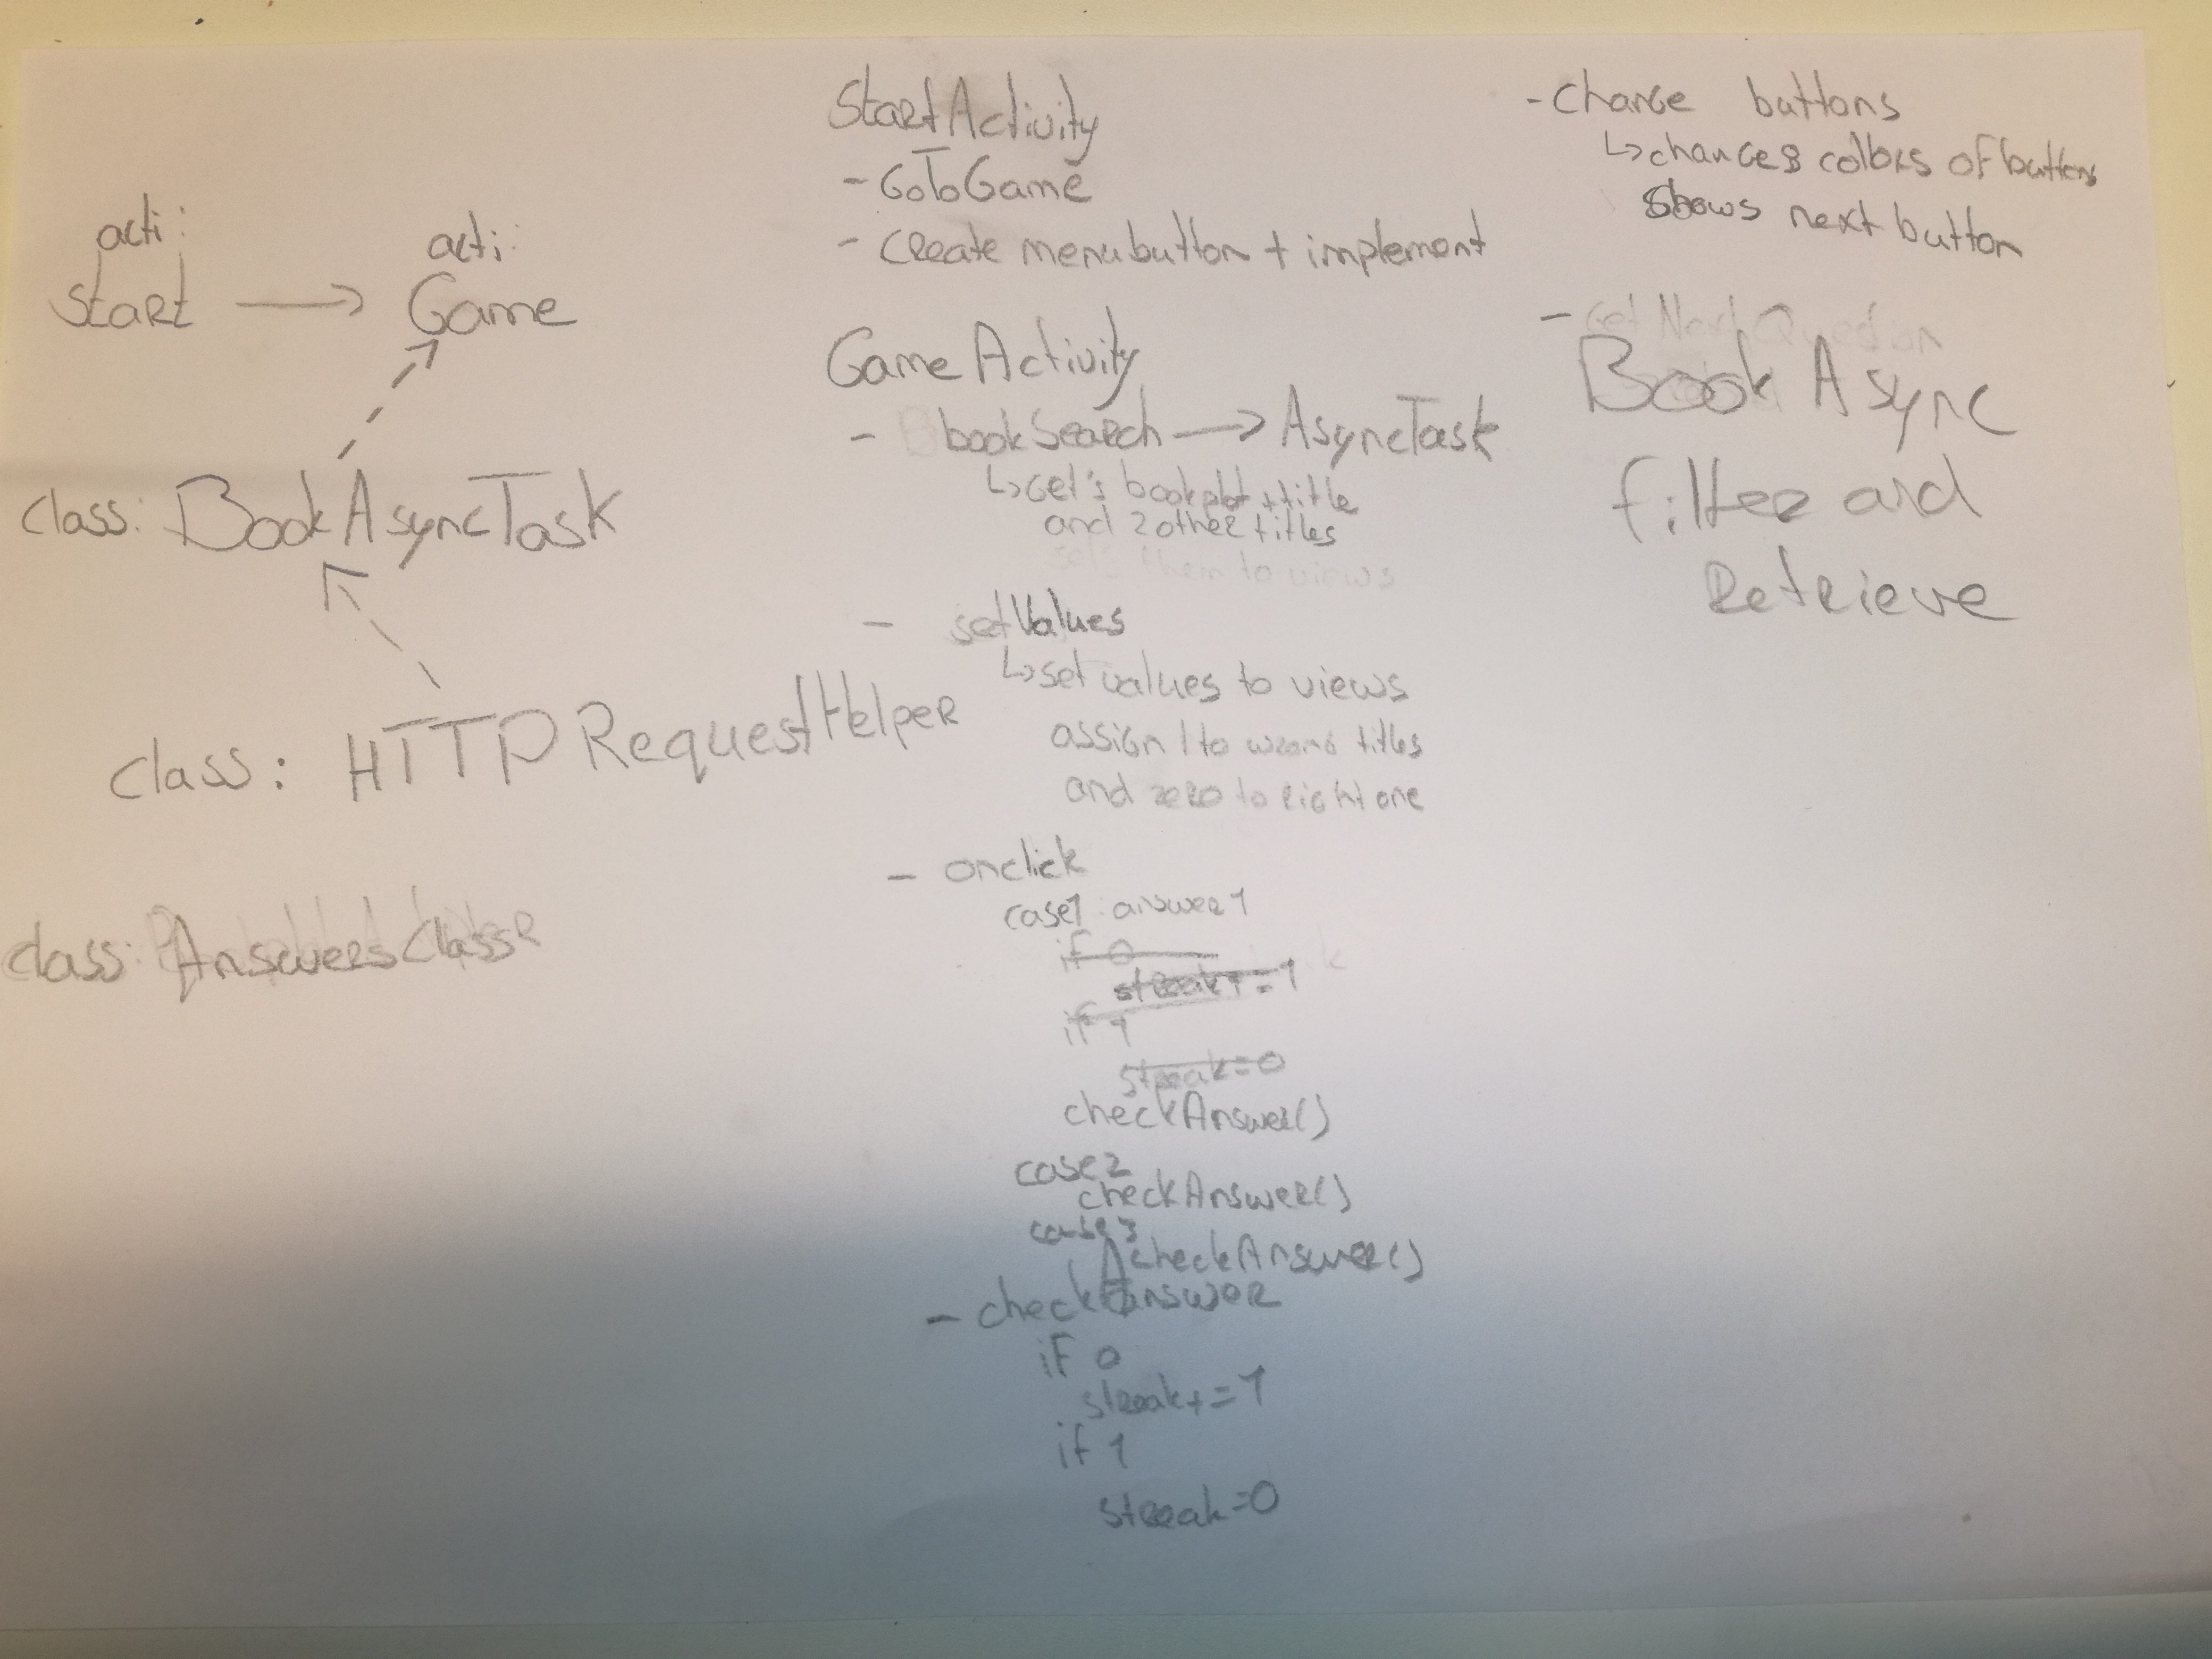 acti:
start
acti:
Game
class: BookAsyncTask
class: HTTPRequestHelper
class: AnswersClass
StartActivity
- GoToGame
- create menubutton + implement
GameActivity
- bookSearch → AsyncTask
↳ Get's bookplot + title
and 2 other titles
sets them to views
- setValues
↳ set values to views
assign 1 to wrong titles
and zero to right one
- onclick
case1: answer1
if 0
streak+=1
if 1
streak=0
checkAnswer()
case2
checkAnswer()
case3
checkAnswer()
- checkAnswer
if 0
streak+=1
if 1
streak=0
- change buttons
↳ changes colors of buttons
shows next button
- Get Next Question
Book Async
filter and
Retrieve